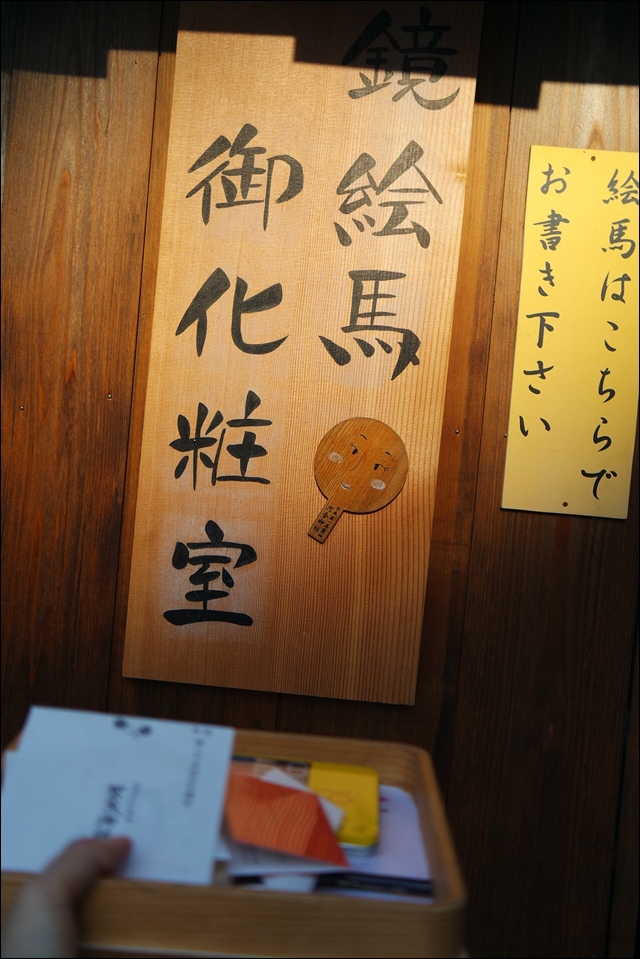 鏡絵馬
御化粧室
絵馬はこちらで
お書き下さい